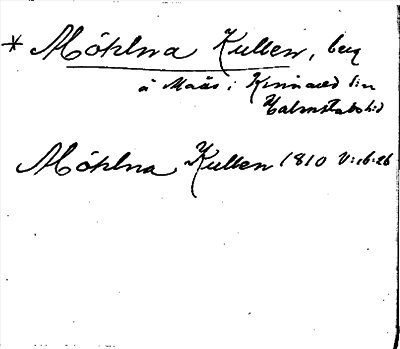 * Möhlna Kullen, berg
å Maås i Kinnared sn
Halmstads hd
Möhlna Kullen 1810 V:16:26